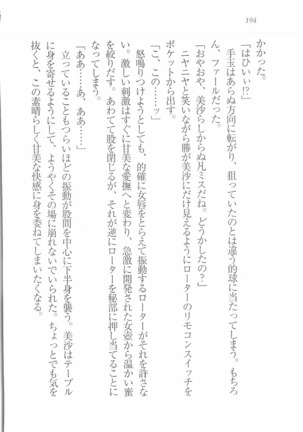 194
かかった。
「はひいぃ!?」
手玉はあらぬ方向に転がり、狙っていたのとは違う的球に当たってしまう。もちろ
ん、ファールだった。
「おやおや、美沙らしからぬ凡ミスだね。どうかしたの？」
ニヤニヤと笑いながら勝が美沙にだけ見えるようにローターのリモコンスイッチを
ポケットから出す。
「こ、この……ッ」
怒鳴りつけようとしても、的確に女唇をとらえて振動するローターがそれを許さな
い。激しい刺激はすぐに甘美な愛撫へと変わり、急激に開発された女壺から温かい蜜
を絞りだす。あわてて股を閉じるが、それが逆にローターを秘部に押し当てることに
なってしまう。
「ああ……あ、ああ……」
立っていることもつらいほどの振動が股間を中心に下半身を襲う。美沙はテーブル
に身を寄せるようにして、ようやくその場に崩れないでいられた。ちょっとでも気を
抜くと、この素晴らしく甘美な快感に身を委ねてしまいたくなる。